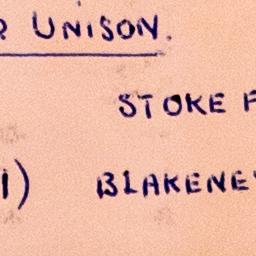 UNISON.
STOKE
1) BLAKENEY